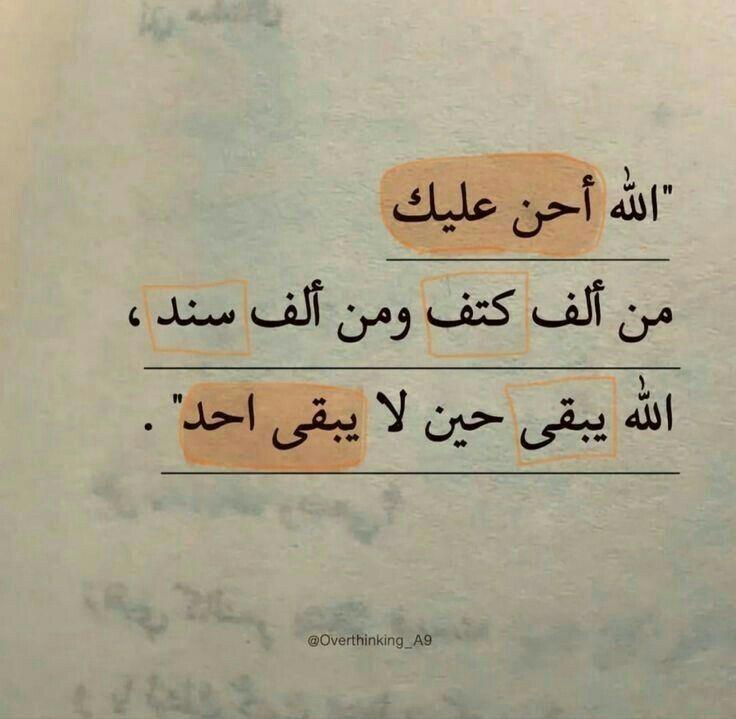 "الله أحن عليك
من ألف كتف ومن ألف سند ،
الله يبقى حين لا يبقى احد" .
@Overthinking_A9